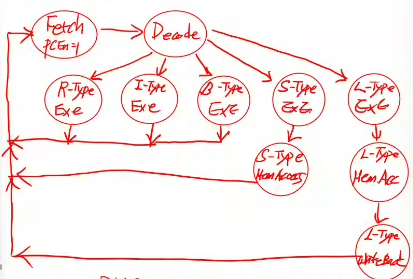 Fetch
PCEn=1
Decode
R-Type
Exe
I-Type
Exe
B-Type
EXE
S-Type
EXE
L-Type
EXE
S-Type
MemAccess
L-Type
MemAcc
L-Type
WriteBack